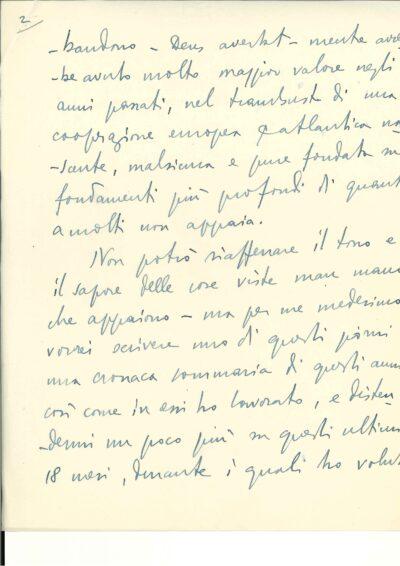 2
-bandono - Deus avertat - mentre avreb
-be avuto molto maggior valore negli
anni passati, nel trambusto di una
cooperazione europea e atlantica na
-scente, malsicura e pure fondata su
fondamenti più profondi di quant
a molti non appaia.
Non potrò riafferrare il tono e
il sapore delle cose viste man mano
che appaiono - ma per me medesimo
vorrei scrivere uno di questi giorni
una cronaca sommaria di questi anni
così come in essi ho lavorato, e disten
-dermi un poco più su questi ultimi
18 mesi, durante i quali ho volut